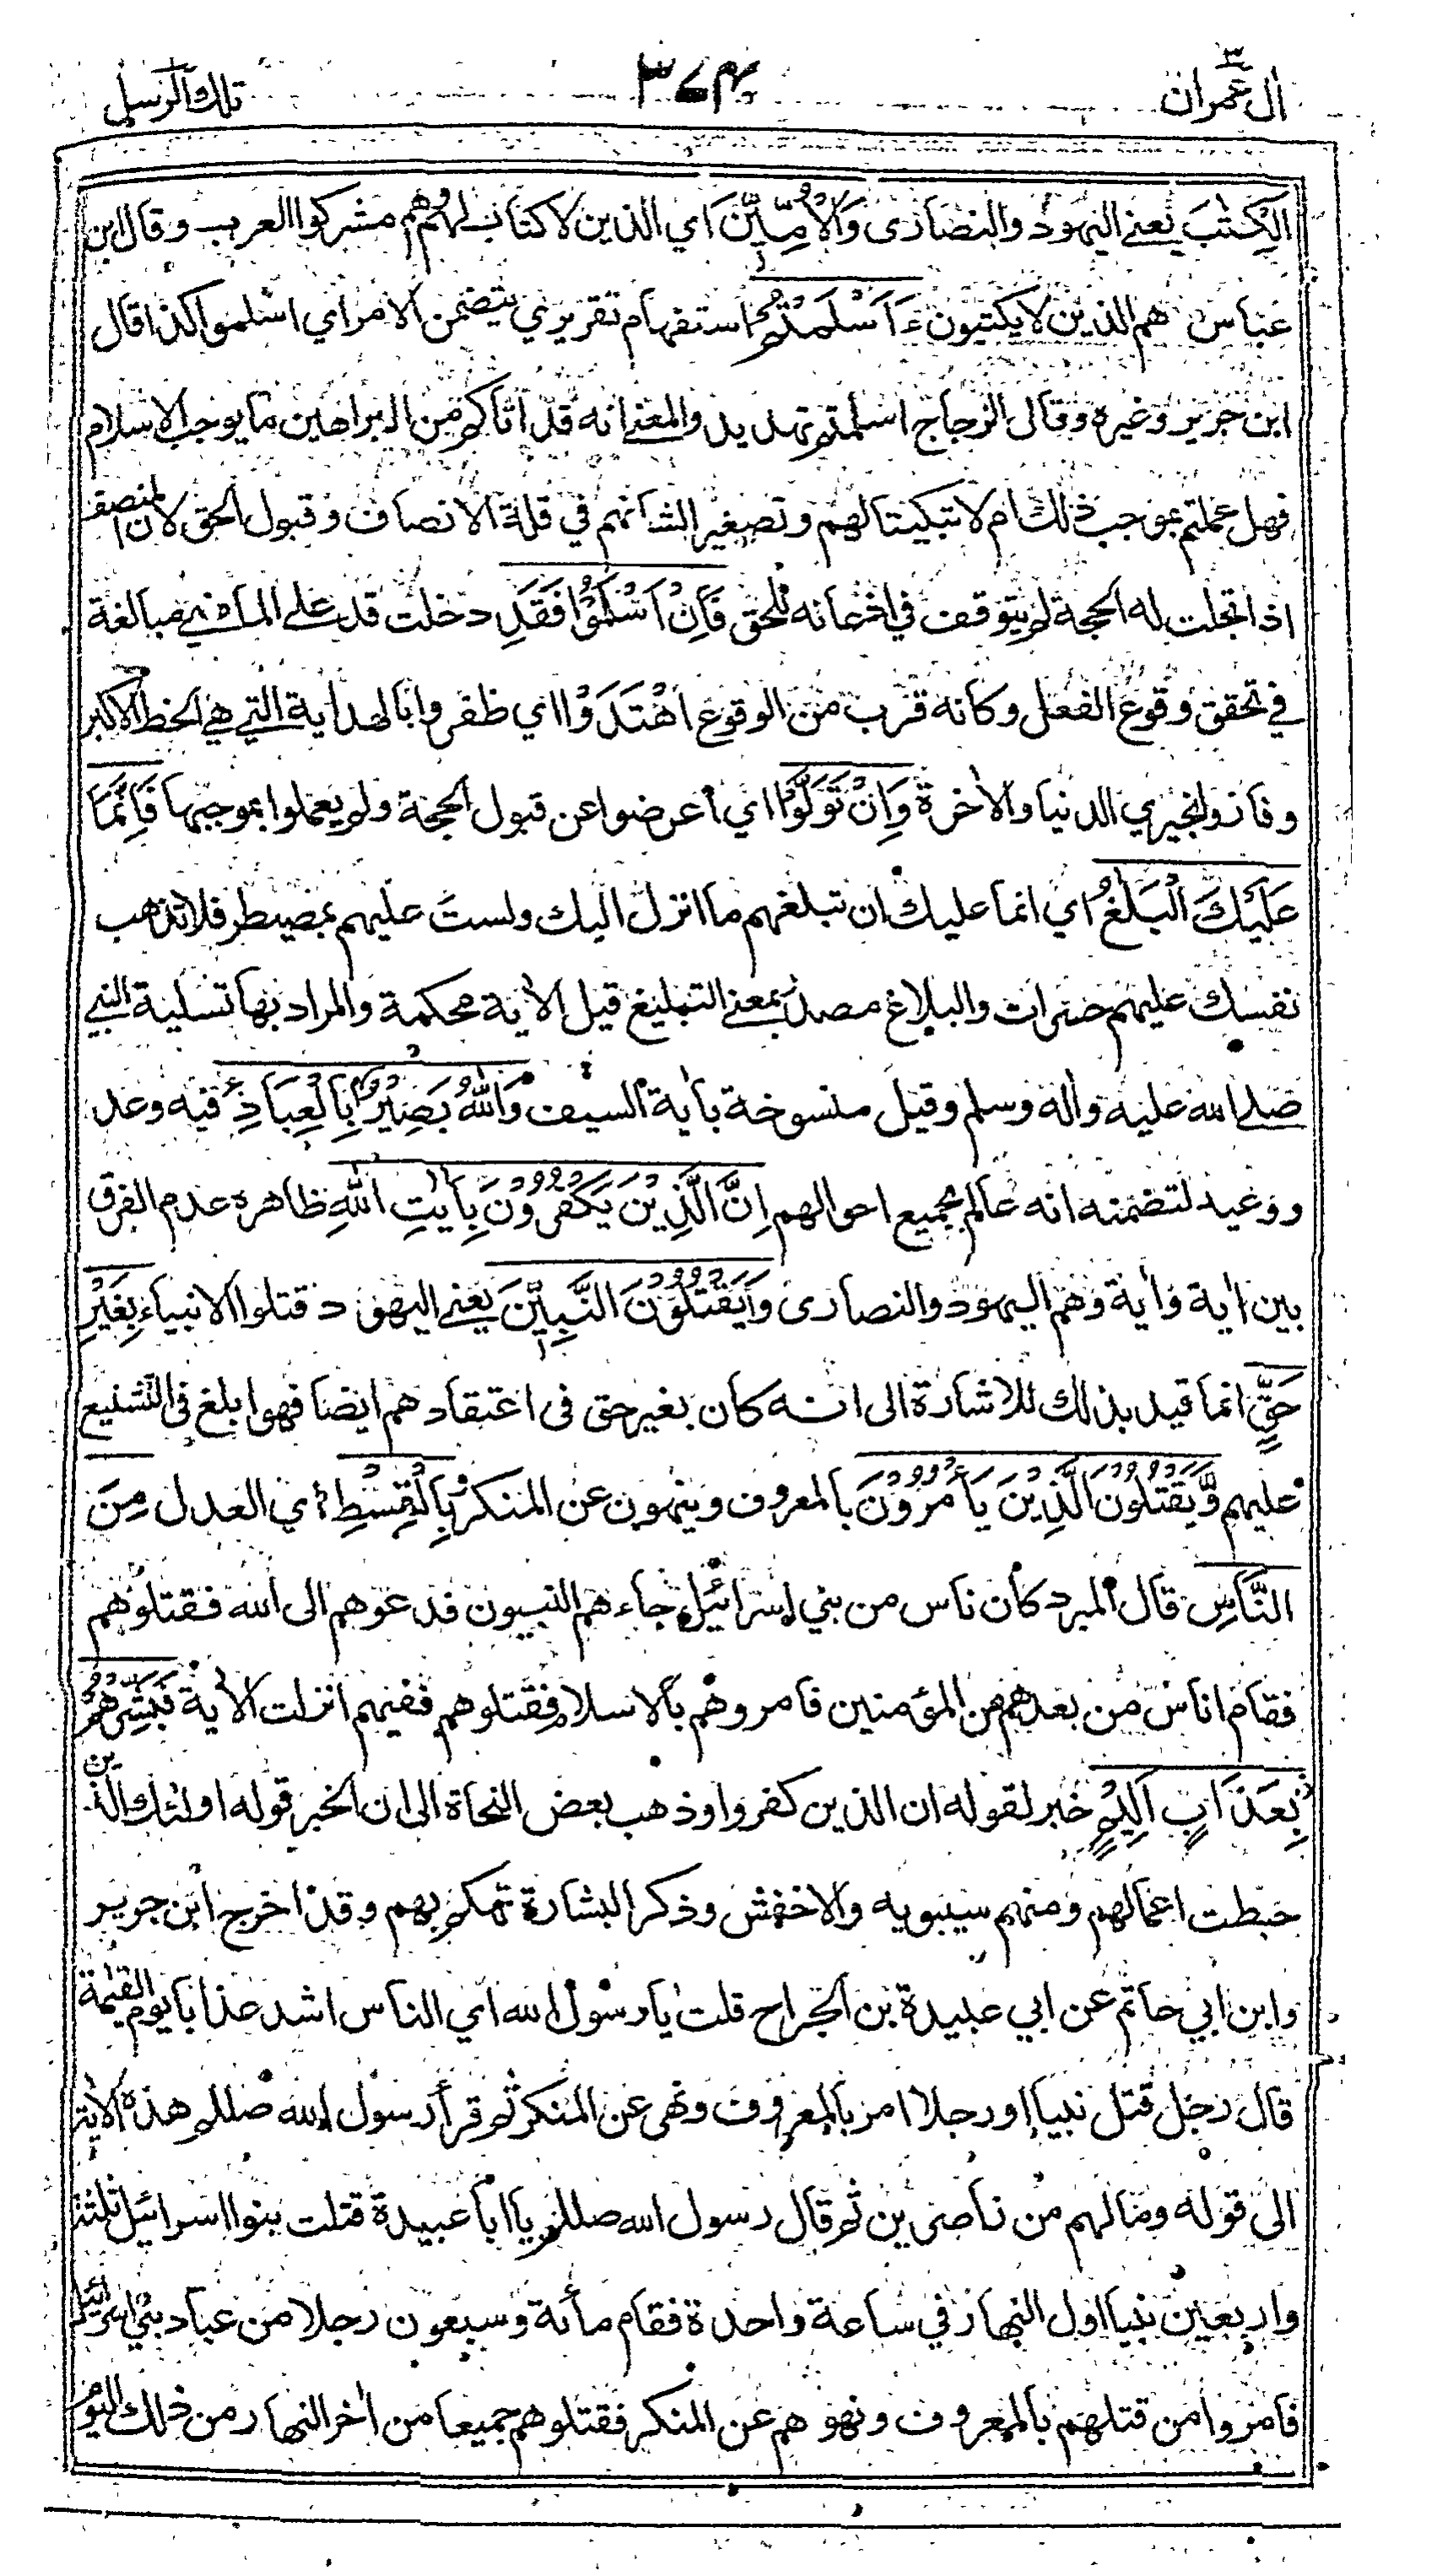 اٰل عمران ٣
تلك الرسل
الْكِتٰبَ يعني اليهود والنصارى وَالْاُمِّيّٖنَ اي الذين لا كتاب لهم هم مشركوا العرب وقال ابن
عباس هم الذين لا يكتبون ءَاَسْلَمْتُمْ استفهام تقريري يتضمن الامر اي اسلموا كذا قال
ابن جرير وغيره وقال الزجاج اسلمتم تهديد والمعنى انه قد اتاكم من البراهين ما يوجب الاسلام
فهل عملتم بموجب ذلك ام لا تبكيتا لهم وتصغيرا لشانهم في قلة الانصاف وقبول الحق لان المنصف
اذا تجلت له الحجة لم يتوقف في اذعانه للحق فَاِنْ اَسْلَمُوْا فَقَدِ دخلت قد على الماضي مبالغة
في تحقق وقوع الفعل وكانه قرب من الوقوع اهْتَدَوْا اي ظفروا بالهداية التي هي الحظ الاكبر
وفازوا بخيري الدنيا والاٰخرة وَاِنْ تَوَلَّوْا اي اعرضوا عن قبول الحجة ولم يعملوا بموجبها فَاِنَّمَا
عَلَيْكَ الْبَلٰغُ اي انما عليك ان تبلغهم ما انزل اليك ولستَ عليهم بمصيطر فلا تذهب
نفسك عليهم حسرات والبلاغ مصدر بمعنى التبليغ قيل الاٰية محكمة والمراد بها تسلية النبي
صلى الله عليه واٰله وسلم وقيل منسوخة باٰية السيف وَاللّٰهُ بَصِيْرٌۢ بِالْعِبَادِ فيه وعد
ووعيد لتضمنه انه عالم بجميع احوالهم اِنَّ الَّذِيْنَ يَكْفُرُوْنَ بِاٰيٰتِ اللّٰهِ ظاهره عدم الفرق
بين اٰية واٰية وهم اليهود والنصارى وَيَقْتُلُوْنَ النَّبِيّٖنَ يعني اليهود قتلوا الانبياء بِغَيْرِ
حَقٍّ انما قيد بذلك للاشارة الى انه كان بغير حق في اعتقادهم ايضا فهو ابلغ في التشنيع
عليهم وَّيَقْتُلُوْنَ الَّذِيْنَ يَاْمُرُوْنَ بالمعروف وينهون عن المنكر بِالْقِسْطِ اي العدل مِنَ
النَّاسِ قال المبرد كان ناس من بني اسرائيل جاءهم النبيون فدعوهم الى الله فقتلوهم
فقام اناس من بعدهم من المؤمنين فامروهم بالاسلام فقتلوهم ففيهم انزلت الاٰية فَبَشِّرْهُمْ
بِعَذَابٍ اَلِيْمٍ خبر لقوله ان الذين كفروا وذهب بعض النحاة الى ان الخبر قوله اولئك الذين
حبطت اعمالهم ومنهم سيبويه والاخفش وذكر البشارة تهكم بهم وقد اخرج ابن جرير
وابن ابي حاتم عن ابي عبيدة بن الجراح قلت يا رسول الله اي الناس اشد عذابا يوم القيٰمة
قال رجل قتل نبيا او رجلا امر بالمعروف ونهى عن المنكر ثم قرأ رسول الله صللم هذه الاٰية
الى قوله وما لهم من ناصرين ثم قال رسول الله صللم يا ابا عبيدة قتلت بنوا اسرائيل ثلثة
واربعين نبيا اول النهار في ساعة واحدة فقام مأئة وسبعون رجلا من عباد بني اسرائيل
فامروا من قتلهم بالمعروف ونهوهم عن المنكر فقتلوهم جميعا من اٰخر النهار من ذلك اليوم